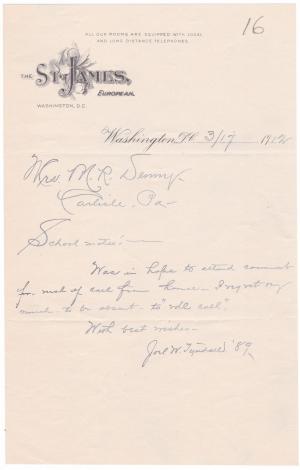 16
ALL OUR ROOMS ARE EQUIPPED WITH LOCAL
AND LONG DISTANCE TELEPHONES.
THE ST. JAMES,
EUROPEAN.
WASHINGTON, D.C.
Washington, D.C. 3/17 1912
Mrs. M. R. Denny
Carlisle, Pa
School mates:
Was in hopes to attend
of call from home. I regret very
much to be absent to "roll call".
With best wishes
Joel W. Tyndall '89